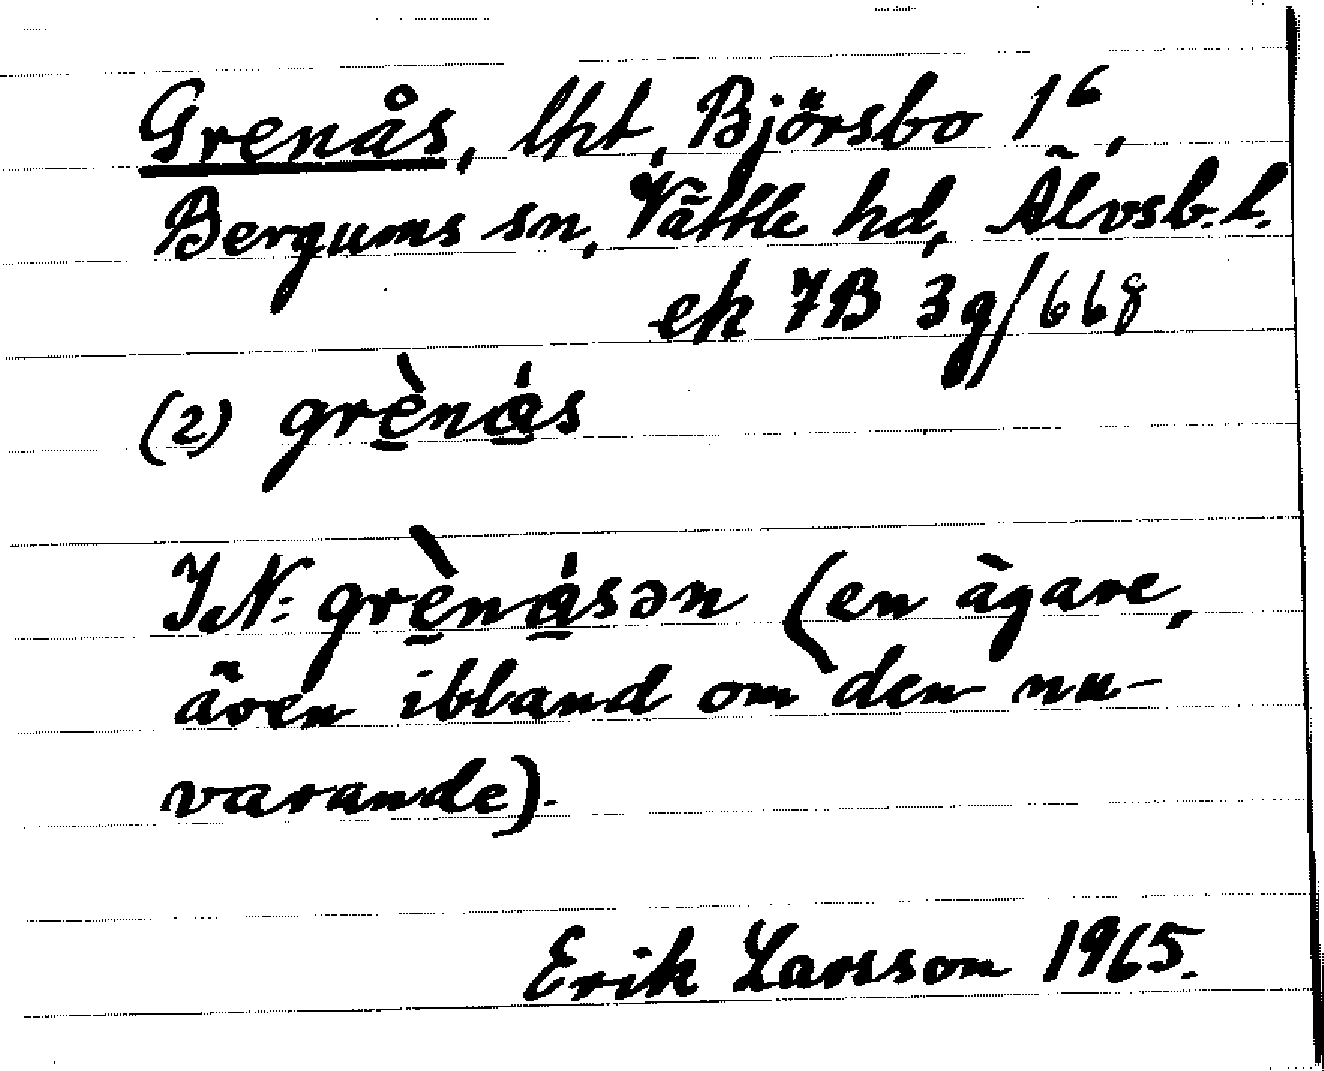 Grenås, lht, Björsbo 1⁶,
Bergums sn, Vättle hd, Älvsb. l.
ek 7B 3g/668
(2) grè̱nás̱
IN: grè̱ná̱sən (en ägare,
även ibland om den nu-
varande).
Erik Larsson 1965.